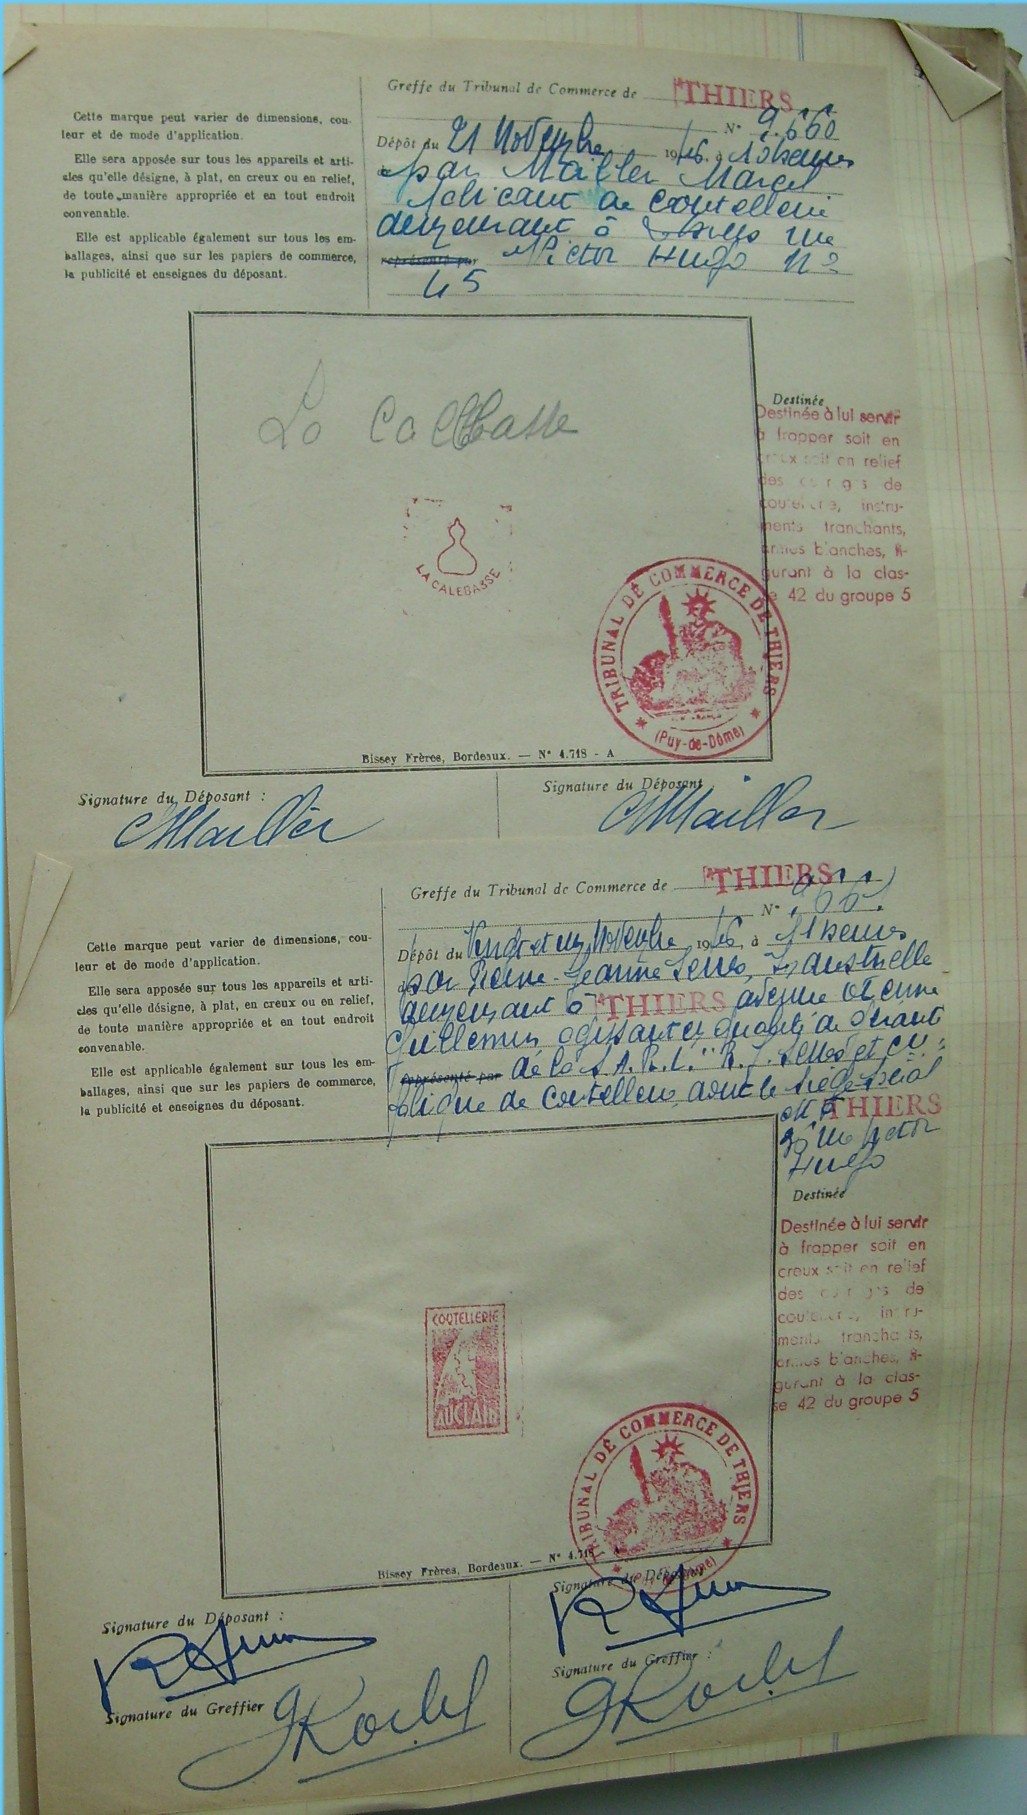 Greffe du Tribunal de Commerce de THIERS
Cette marque peut varier de dimensions, cou-
leur et de mode d'application.
Elle sera apposée sur tous les appareils et arti-
cles qu'elle désigne, à plat, en creux ou en relief,
de toute manière appropriée et en tout endroit
convenable.
Elle est applicable également sur tous les em-
ballages, ainsi que sur les papiers de commerce,
la publicité et enseignes du déposant.
N° 9.660
Dépôt du 21 Novembre 1946, à 10 heures
par Mailler Marcel
fabricant de Coutellerie
demeurant à Thiers rue
représenté par Victor Hugo N°
45
La Calebasse
LA CALEBASSE
Destinée
Destinée à lui servir
à frapper soit en
creux soit en relief
des de
coutellerie, instru-
ments tranchants,
armes blanches, fi-
gurant à la clas-
se 42 du groupe 5
TRIBUNAL DE COMMERCE DE THIERS
(Puy-de-Dôme)
Bissey Frères, Bordeaux. — N° 4.718 - A
Signature du Déposant :
Signature du Déposant
Mailler
Mailler
Greffe du Tribunal de Commerce de THIERS
Cette marque peut varier de dimensions, cou-
leur et de mode d'application.
Elle sera apposée sur tous les appareils et arti-
cles qu'elle désigne, à plat, en creux ou en relief,
de toute manière appropriée et en tout endroit
convenable.
Elle est applicable également sur tous les em-
ballages, ainsi que sur les papiers de commerce,
la publicité et enseignes du déposant.
N° 9.661
Dépôt du Vingt et un Novembre 1946, à 11 heures
par Jeanne Industrielle
demeurant à THIERS avenue Etienne
Guillemin agissant en qualité de Gérant
représenté par de la S.A.R.L. et Cie
de Coutellerie dont le Siège Social
est à THIERS
rue Victor
Hugo
Destinée
Destinée à lui servir
à frapper soit en
creux soit en relief
des de
coutellerie, instru-
ments tranchants,
armes blanches, fi-
gurant à la clas-
se 42 du groupe 5
COUTELLERIE
AUCLAIR
TRIBUNAL DE COMMERCE DE THIERS
Bissey Frères, Bordeaux. — N° 4.718 - A
Signature du Déposant :
Signature du Déposant
Signature du Greffier
Signature du Greffier :